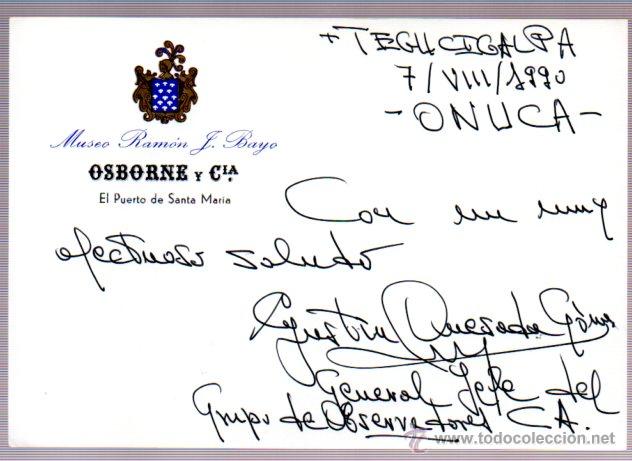 + TEGUCIGALPA
7/VIII/1990
- ONUCA -
Museo Ramón J. Bayo
OSBORNE Y CIA.
El Puerto de Santa Maria
Con un muy
afectuoso saludo
Agustín Quesada Gómez
General Jefe del
Grupo de Observadores CA.
www.todocoleccion.net